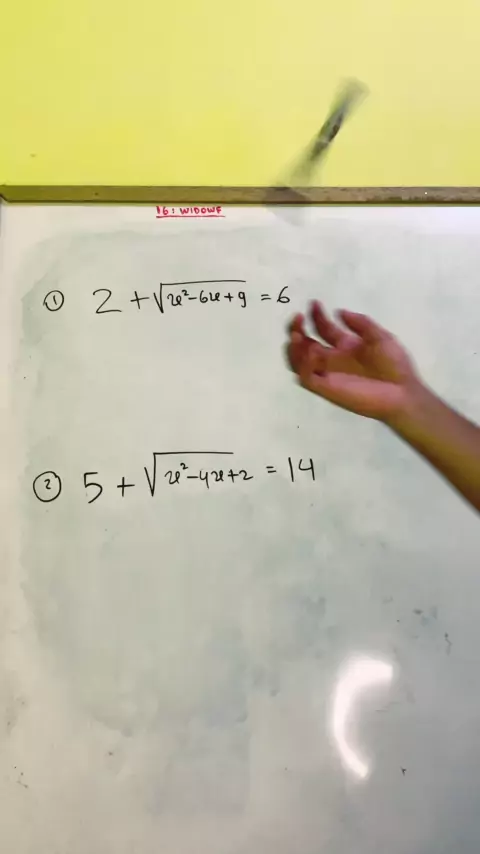 16: WIDOWF
① 2 + √x²-6x+9 = 6
② 5 + √x²-4x+2 = 14